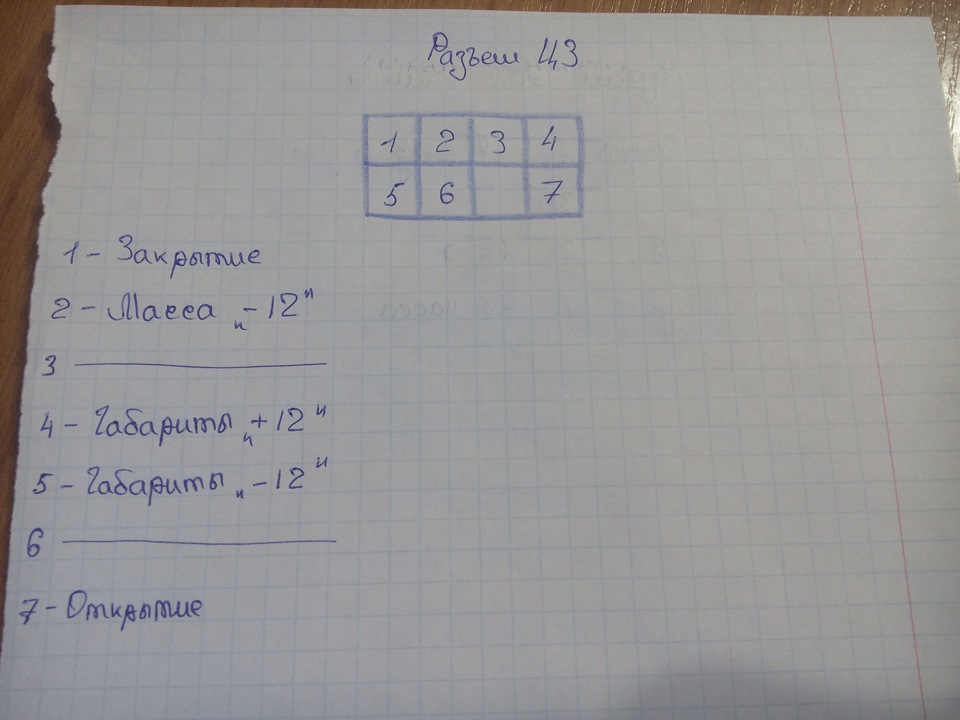 Разъем ЦЗ
1 2 3 4
5 6 7
1 - Закрытие
2 - Масса „-12"
3
4 - Габариты „+12"
5 - Габариты „-12"
6
7 - Открытие